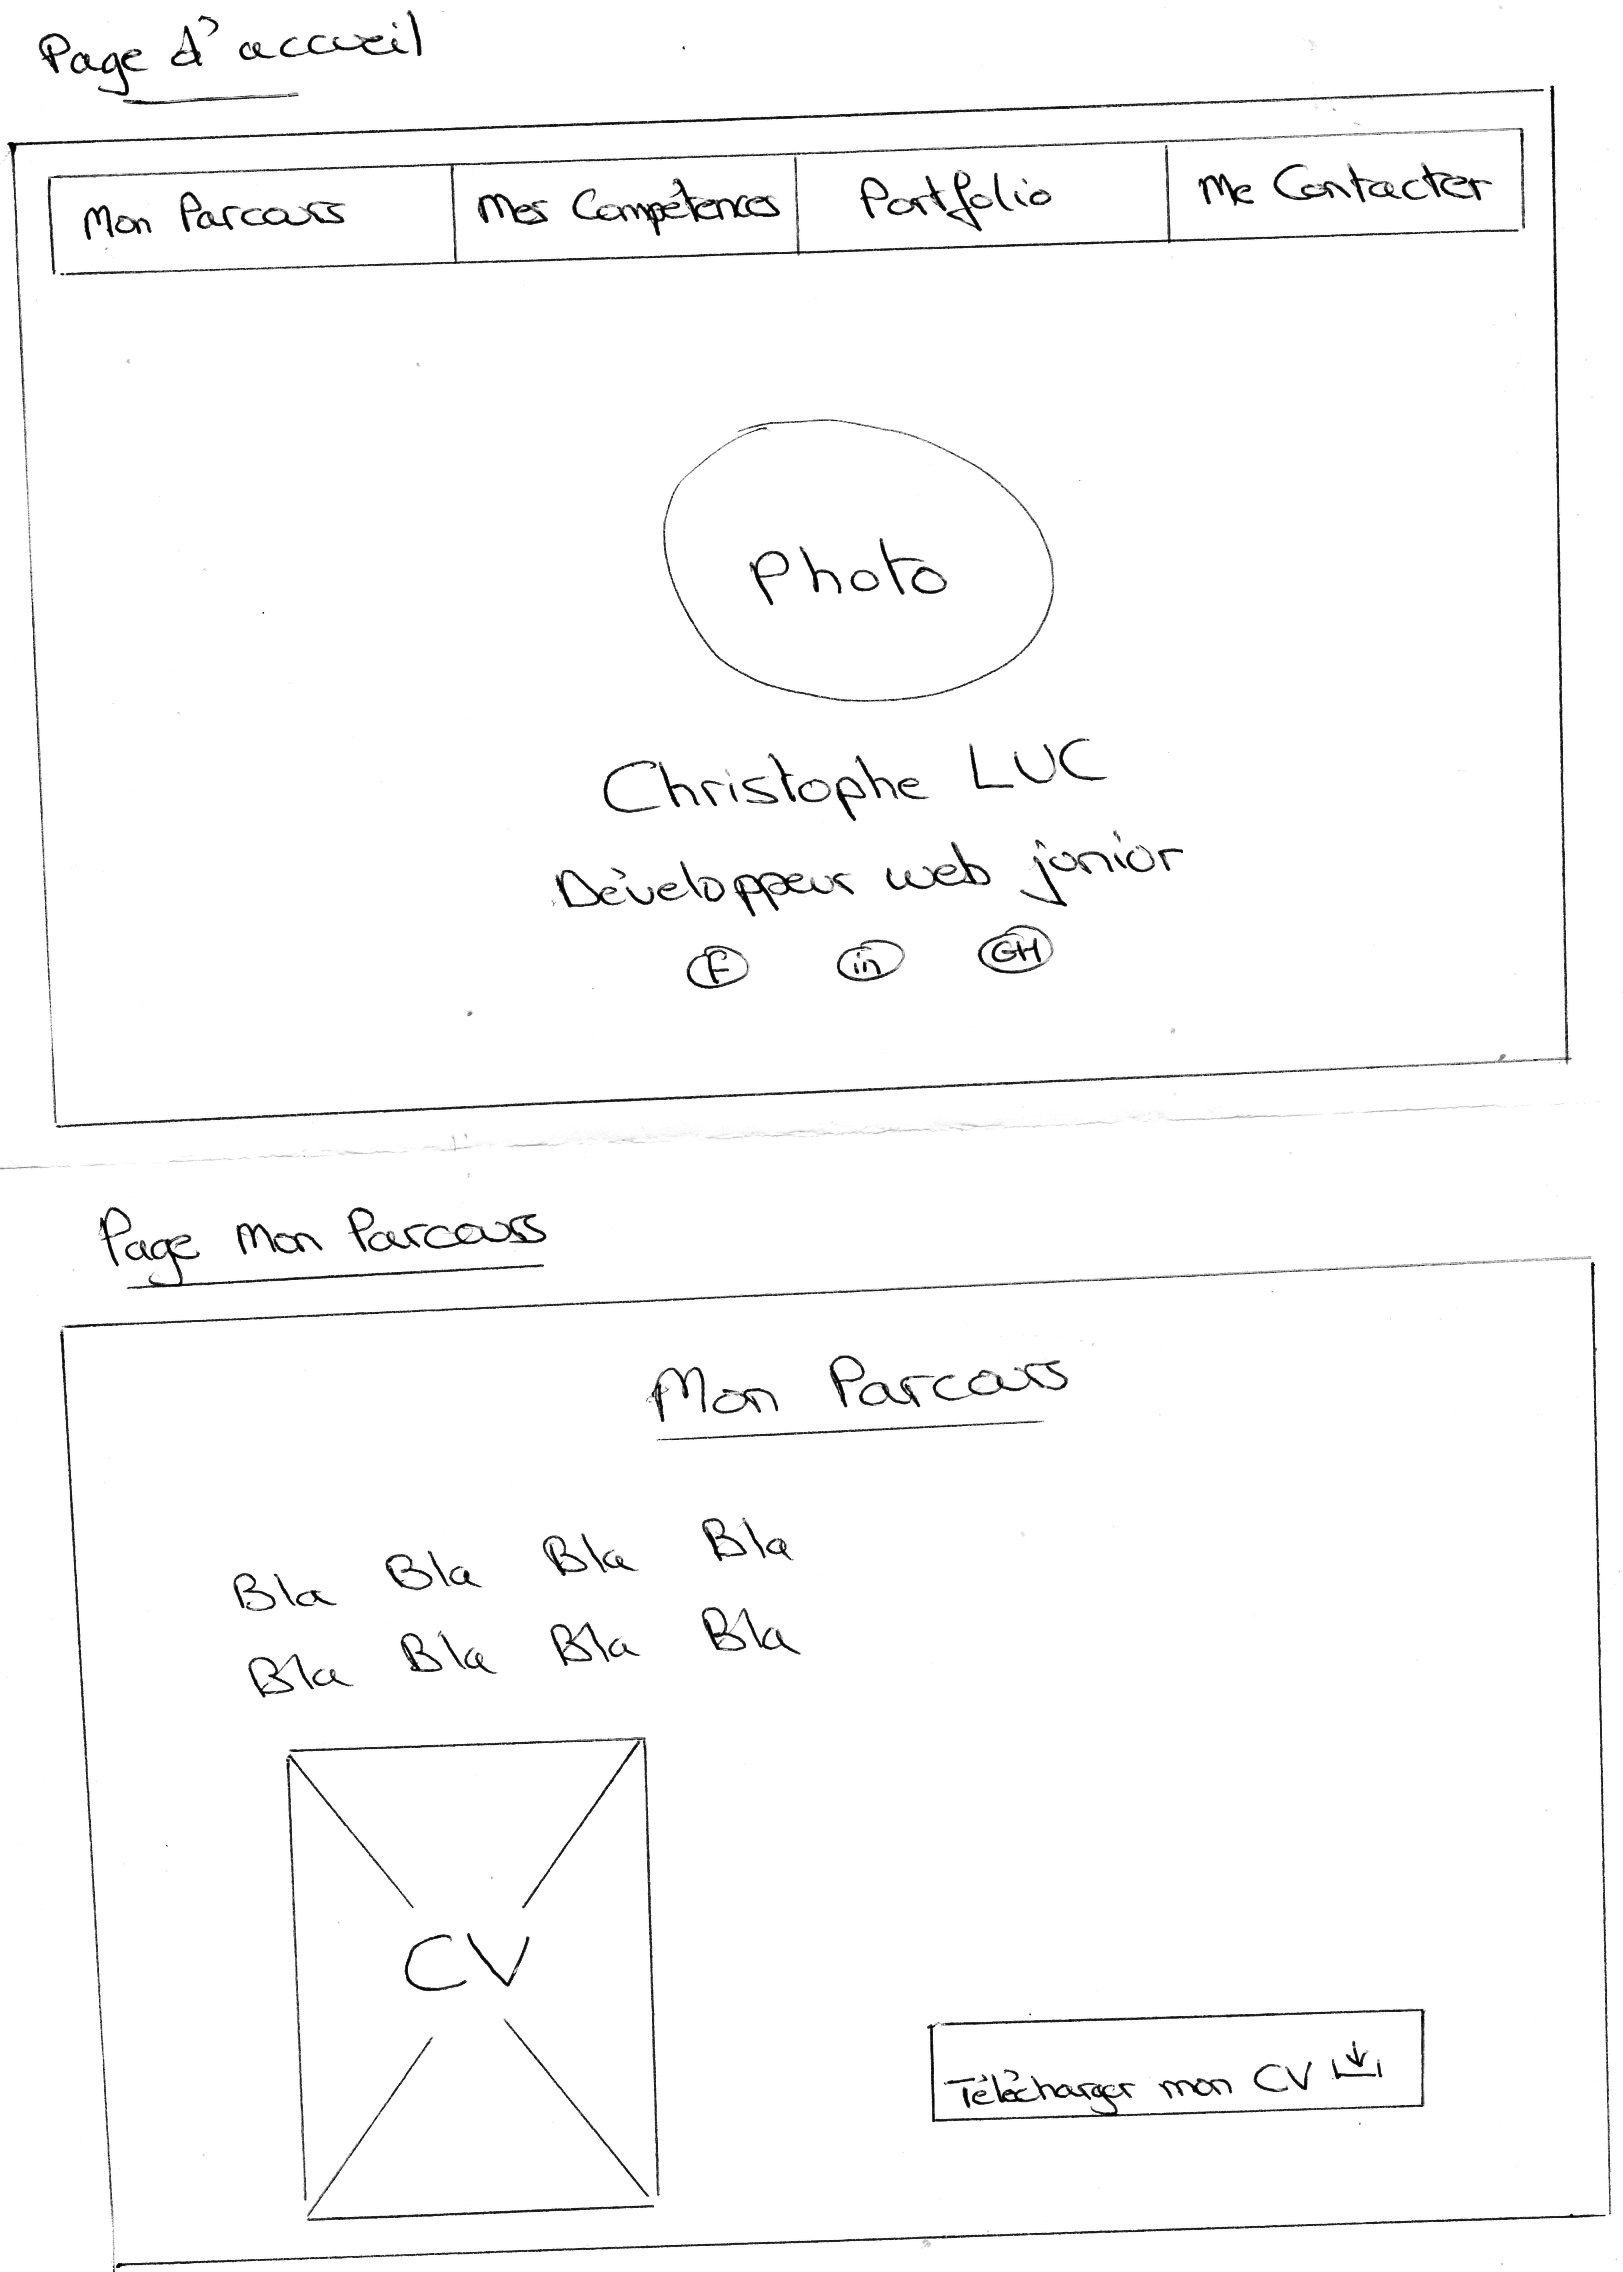 Page d'accueil
Mon Parcours Mes Compétences Portfolio Me Contacter
Photo
Christophe LUC
Développeur web junior
F in GH
Page Mon Parcours
Mon Parcours
Bla Bla Bla Bla
Bla Bla Bla Bla
CV
Télécharger mon CV